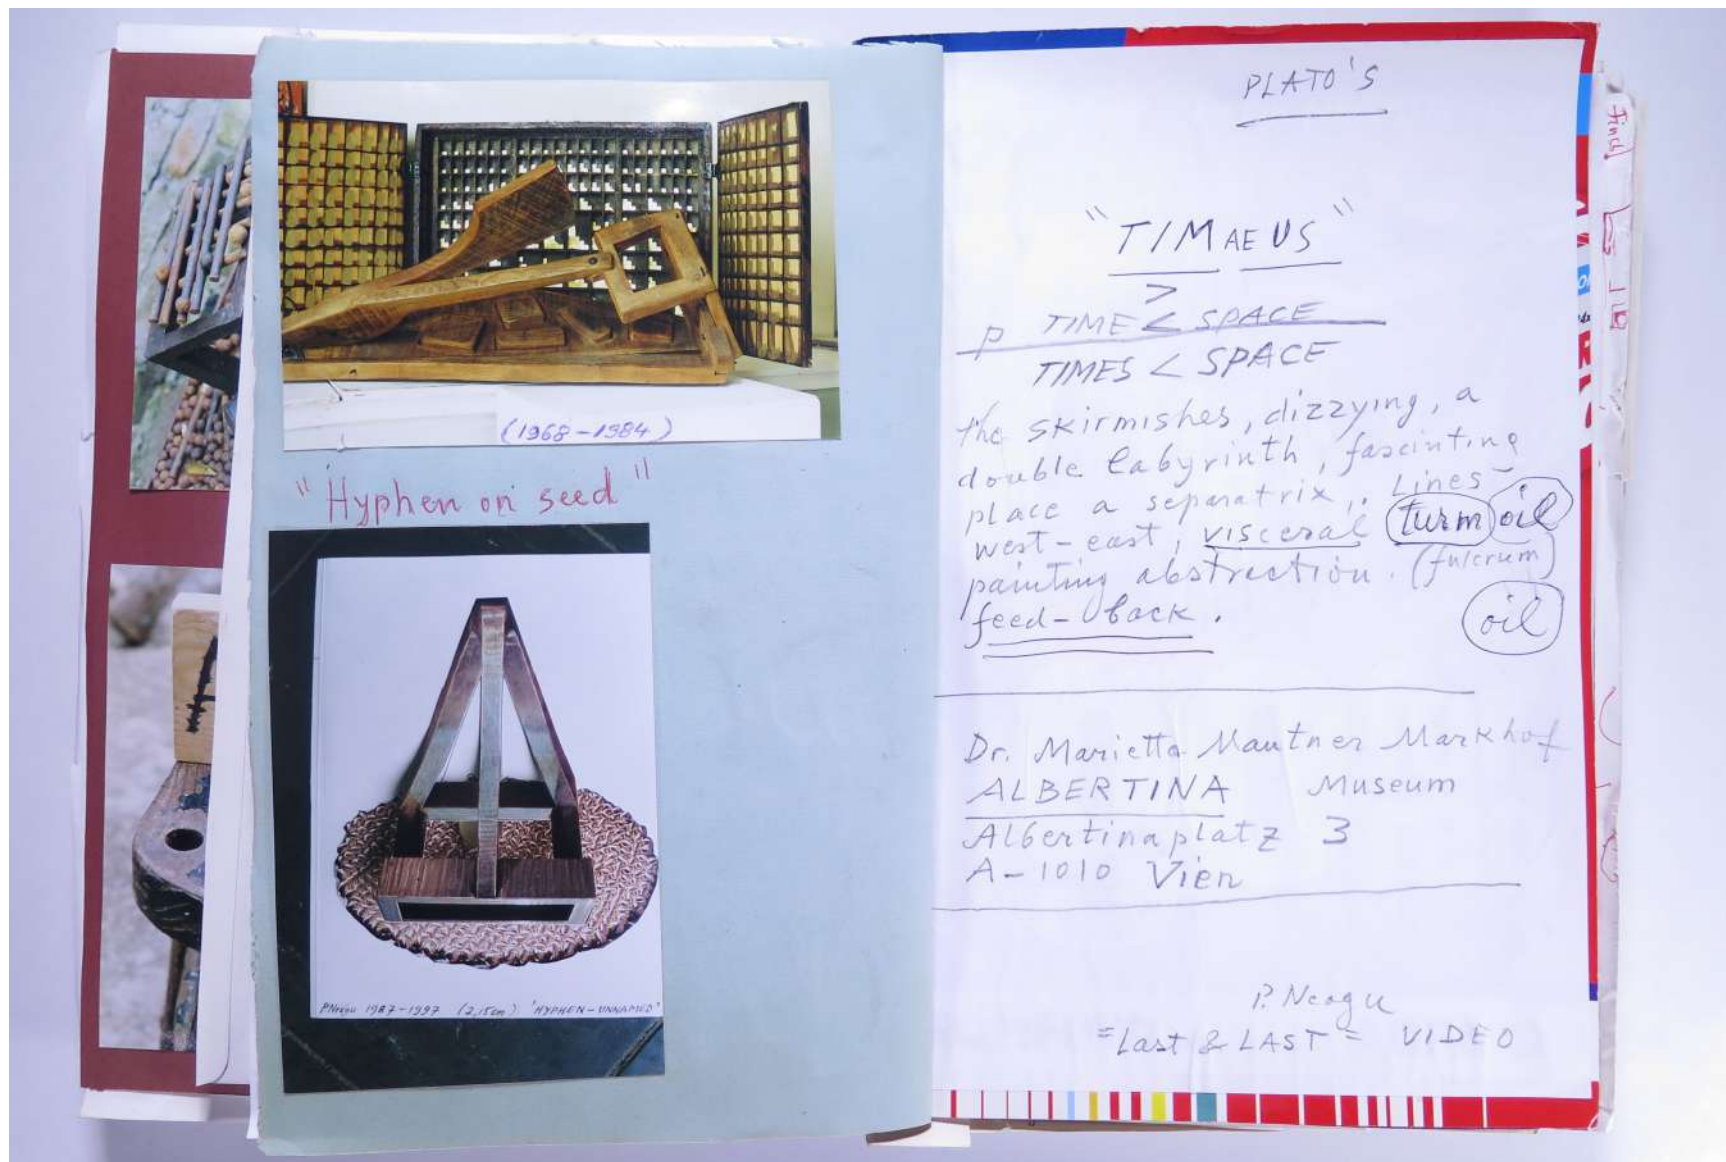 (1968-1984)
"Hyphen on seed"
P.Neagu 1987-1997 (2,15cm) 'HYPHEN-UNNAMED'
PLATO'S
"TIMAEUS"
>
p TIME < SPACE
TIMES < SPACE
the skirmishes, dizzying, a
double labyrinth, fascinting
place a separatrix,. Lines-
west-east, visceral turmoil
painting abstraction. (fulcrum)
feed-back. oil
Dr. Marietta Mautner Markhof
ALBERTINA Museum
Albertinaplatz 3
A-1010 Vien
P. Neagu
=Last & LAST= VIDEO
Finch